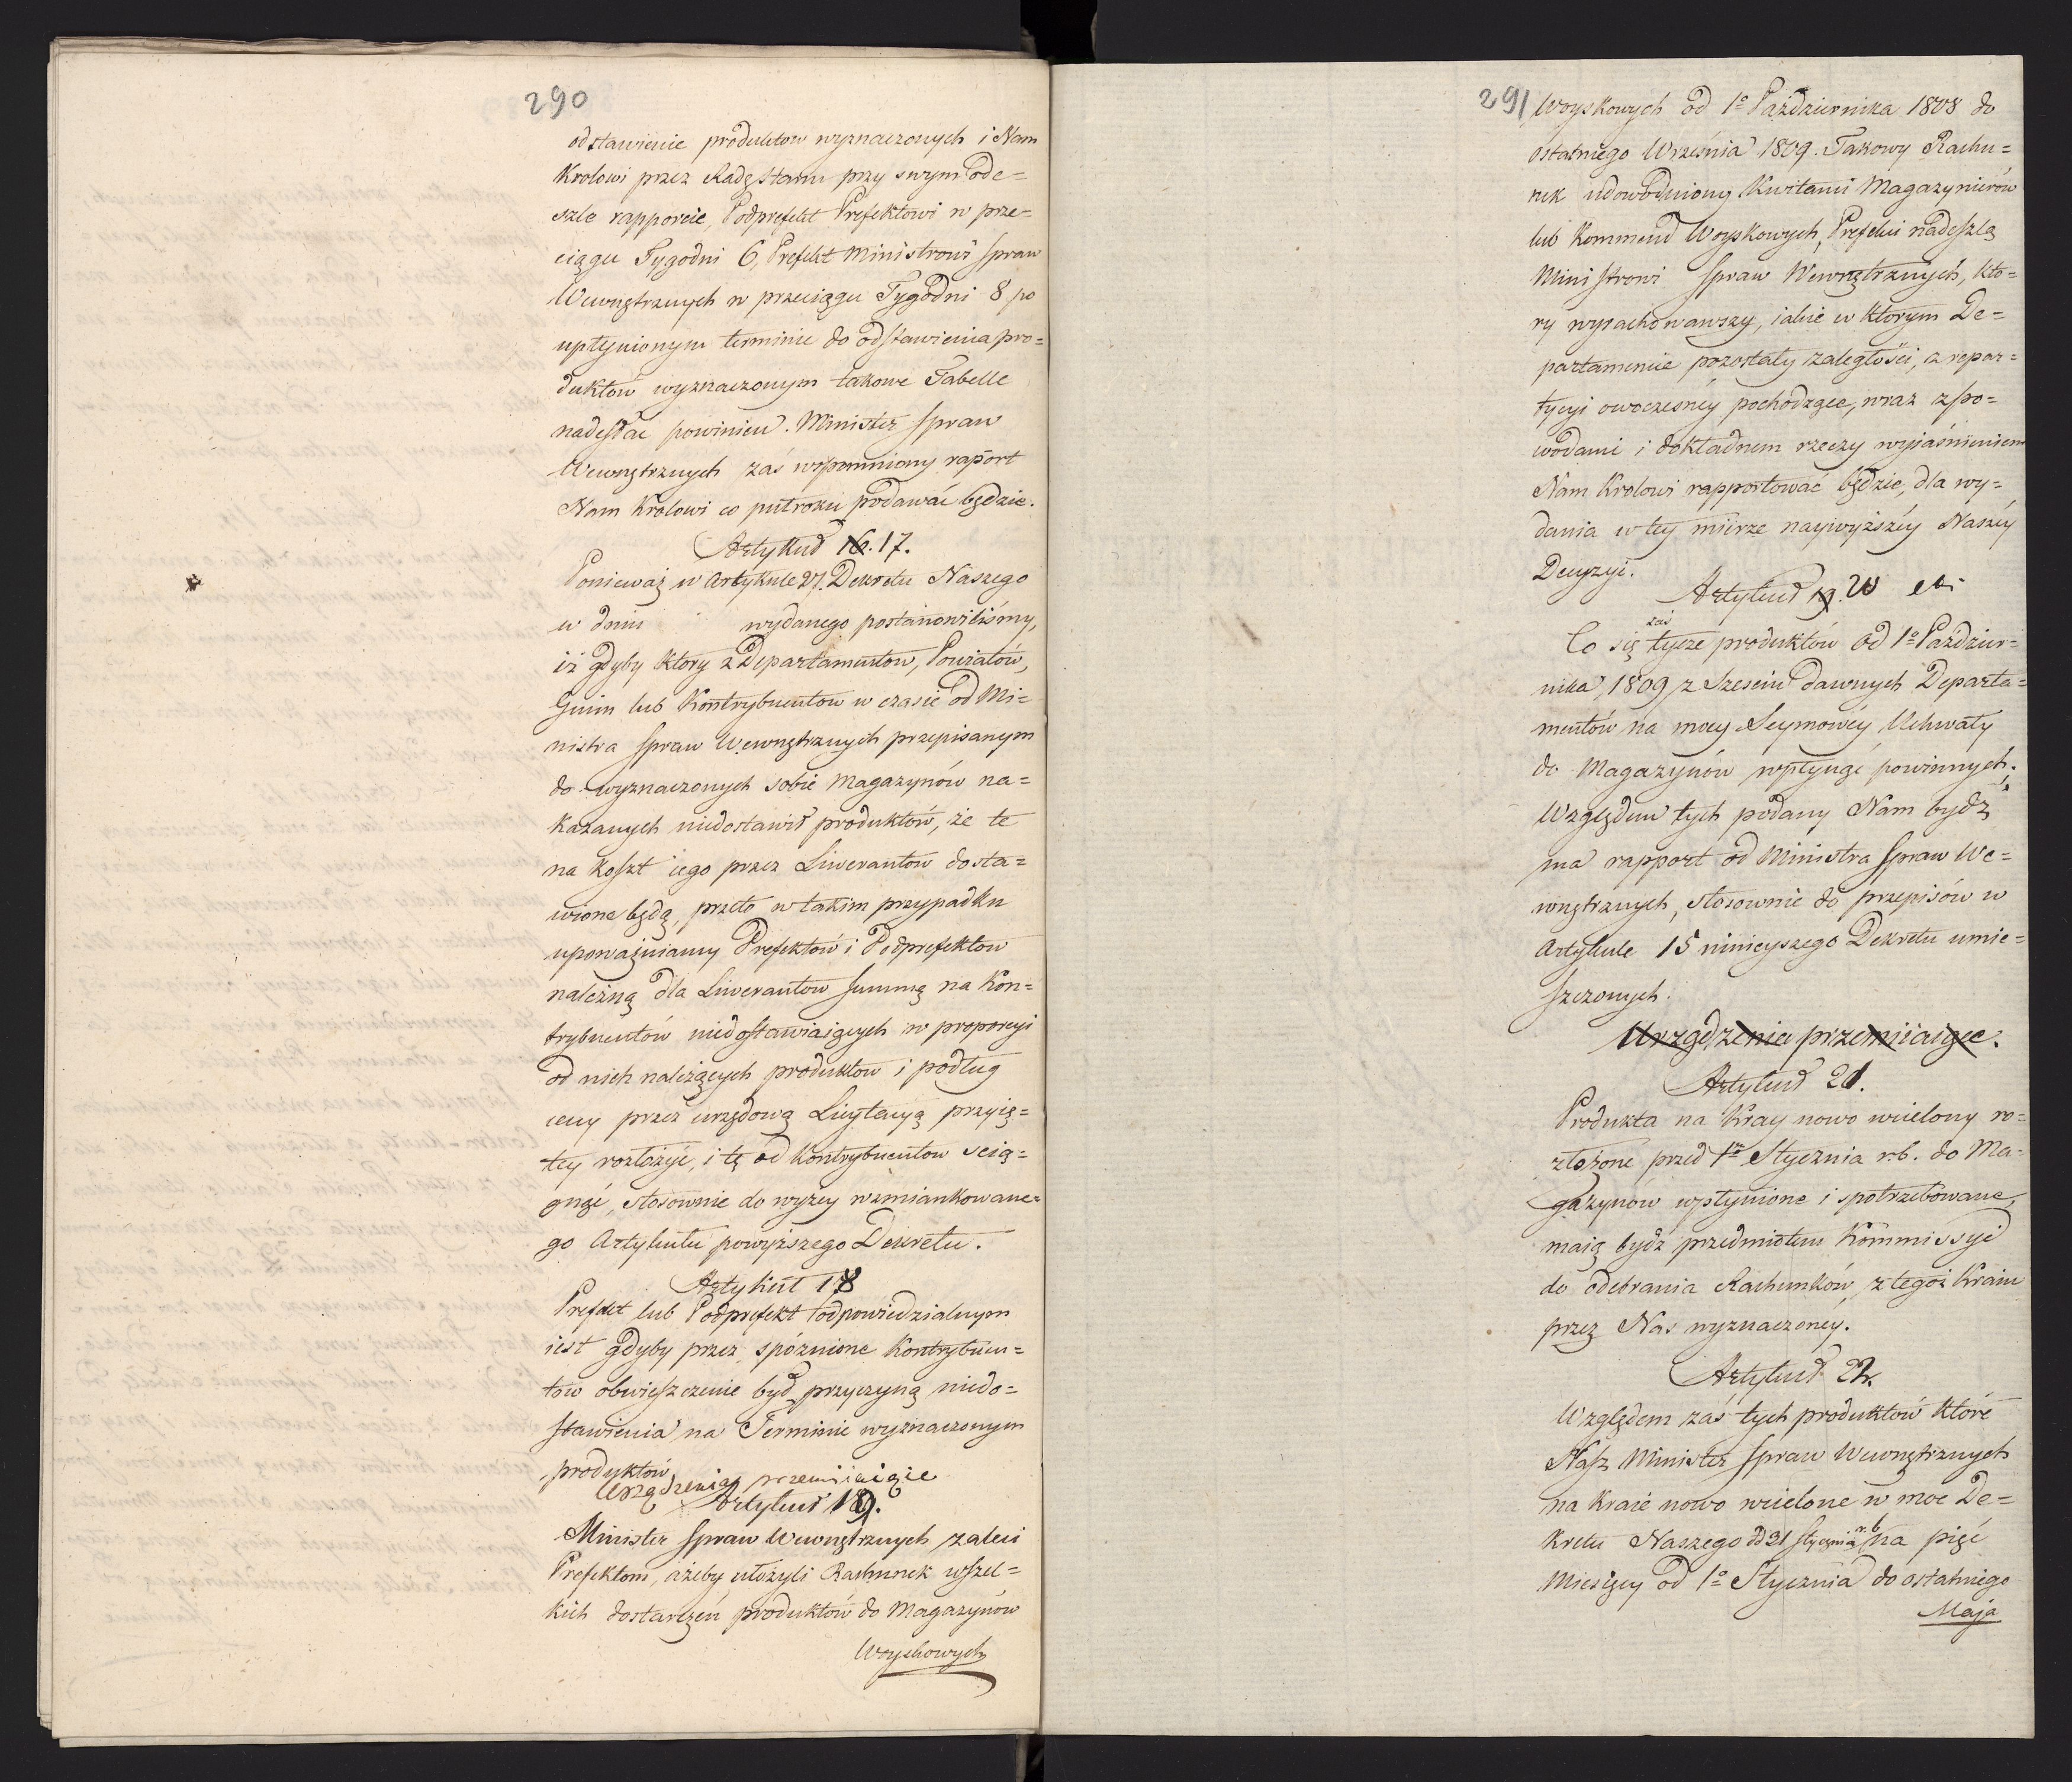 290
odstawienie produktow wyznaczonych i Nam
Krolowi przez Radę Stanu przy swym ode=
szle rapporcie, Podprefekt Prefektowi w prze=
ciągu Tygodni 6, Prefekt Ministrowi Spraw
Wewnętrznych w przeciągu Tygodni 8 po
upłynionym terminie do odstawienia pro=
duktów wyznaczonym takowe Tabelle
nadesłać powinien. Minister Spraw
Wewnętrznych zaś wspomniony raport
Nam Krolowi co pułroku podawać będzie.
Artykuł 16. 17.
Ponieważ w Artykule 27. Dekretu Naszego
w dniu wydanego postanowiliśmy,
iż gdyby ktory z Departamentow, Powiatów,
Gmin lub Kontrybuentow w czasie od Mi=
nistra Spraw Wewnętrznych przepisanym
do wyznaczonych sobie Magazynów na=
kazanych niedostawił produktów, że te
na koszt iego przez Liwerantow dosta=
wione będą, przeto w takim przypadku
upoważniamy Prefektów i Podprefektow
należną dla Liwerantow summę na Kon=
trybuentów niedostawiaiących w proporcyi
od nich należących produktow i podług
ceny przez urzędową Licytacyą przyię=
tey rozłożyć, i tę od Kontrybuentow ścią=
gnąć, stosownie do wyżey wzmiankowane=
go Artykułu powyższego Dekretu.
Artykuł 18
Prefekt lub Podprefekt odpowiedzialnym
iest gdyby przez spóźnione Kontrybuen=
tów obwieszczenie był przyczyną niedo=
stawienia na Terminie wyznaczonym
produktów
Urządzenia przemiiaiące
Artykuł 19.
Minister Spraw Wewnętrznych zaleci
Prefektom, ażeby ułożyli Rachunek wszel=
kich dostarczeń produktów do Magazynów
Woyskowych
291 Woyskowych od 1o Października 1808 do
ostatniego Września 1809. Takowy Rachu=
nek udowodniony Kwitami Magazynierów
lub Kommend Woyskowych, Prefekci nadeszlą
Ministrowi Spraw Wewnętrznych, kto=
ry wyrachowawszy, iakie w ktorym De=
partamencie pozostały zaległości, z repar=
tycyi owoczesney pochodzące, wraz z po=
wodami i dokładnem rzeczy wyiaśnieniem
Nam Krolowi rapportować będzie, dla wy=
dania w tey mierze naywyższéy Naszéy
Decyzyi.
Artykuł 19. 20
Co się zaś tycze produktów od 1o Paździer=
nika 1809 z Sześciu dawnych Departa=
mentów na mocy Seymowéy Uchwały
do Magazynów wpłynąć powinnych;
Względem tych podany Nam bydź
ma rapport od Ministra Spraw We=
wnętrznych, stosownie do przepisów w
Artykule 15 ninieyszego Dekretu umie=
szczonych.
Urządzenia przemiiaiące.
Artykuł 21.
Produkta na Kray nowo wcielony ro=
złożone przed 1m Stycznia r.b. do Ma=
gazynow wpłynione i spotrzebowane,
maią bydź przedmiotem Kommissyi
do odebrania Rachunków z tegoż Kraiu
przez Nas wyznaczoney.
Artykuł 22.
Względem zaś tych produktów które
Nasz Minister Spraw Wewnętrznych
na Kraie nowo wcielone w moc De=
kretu Naszego d 31 Stycznia r. b. na pięć
Miesięcy od 1o Stycznia do ostatniego
Maja